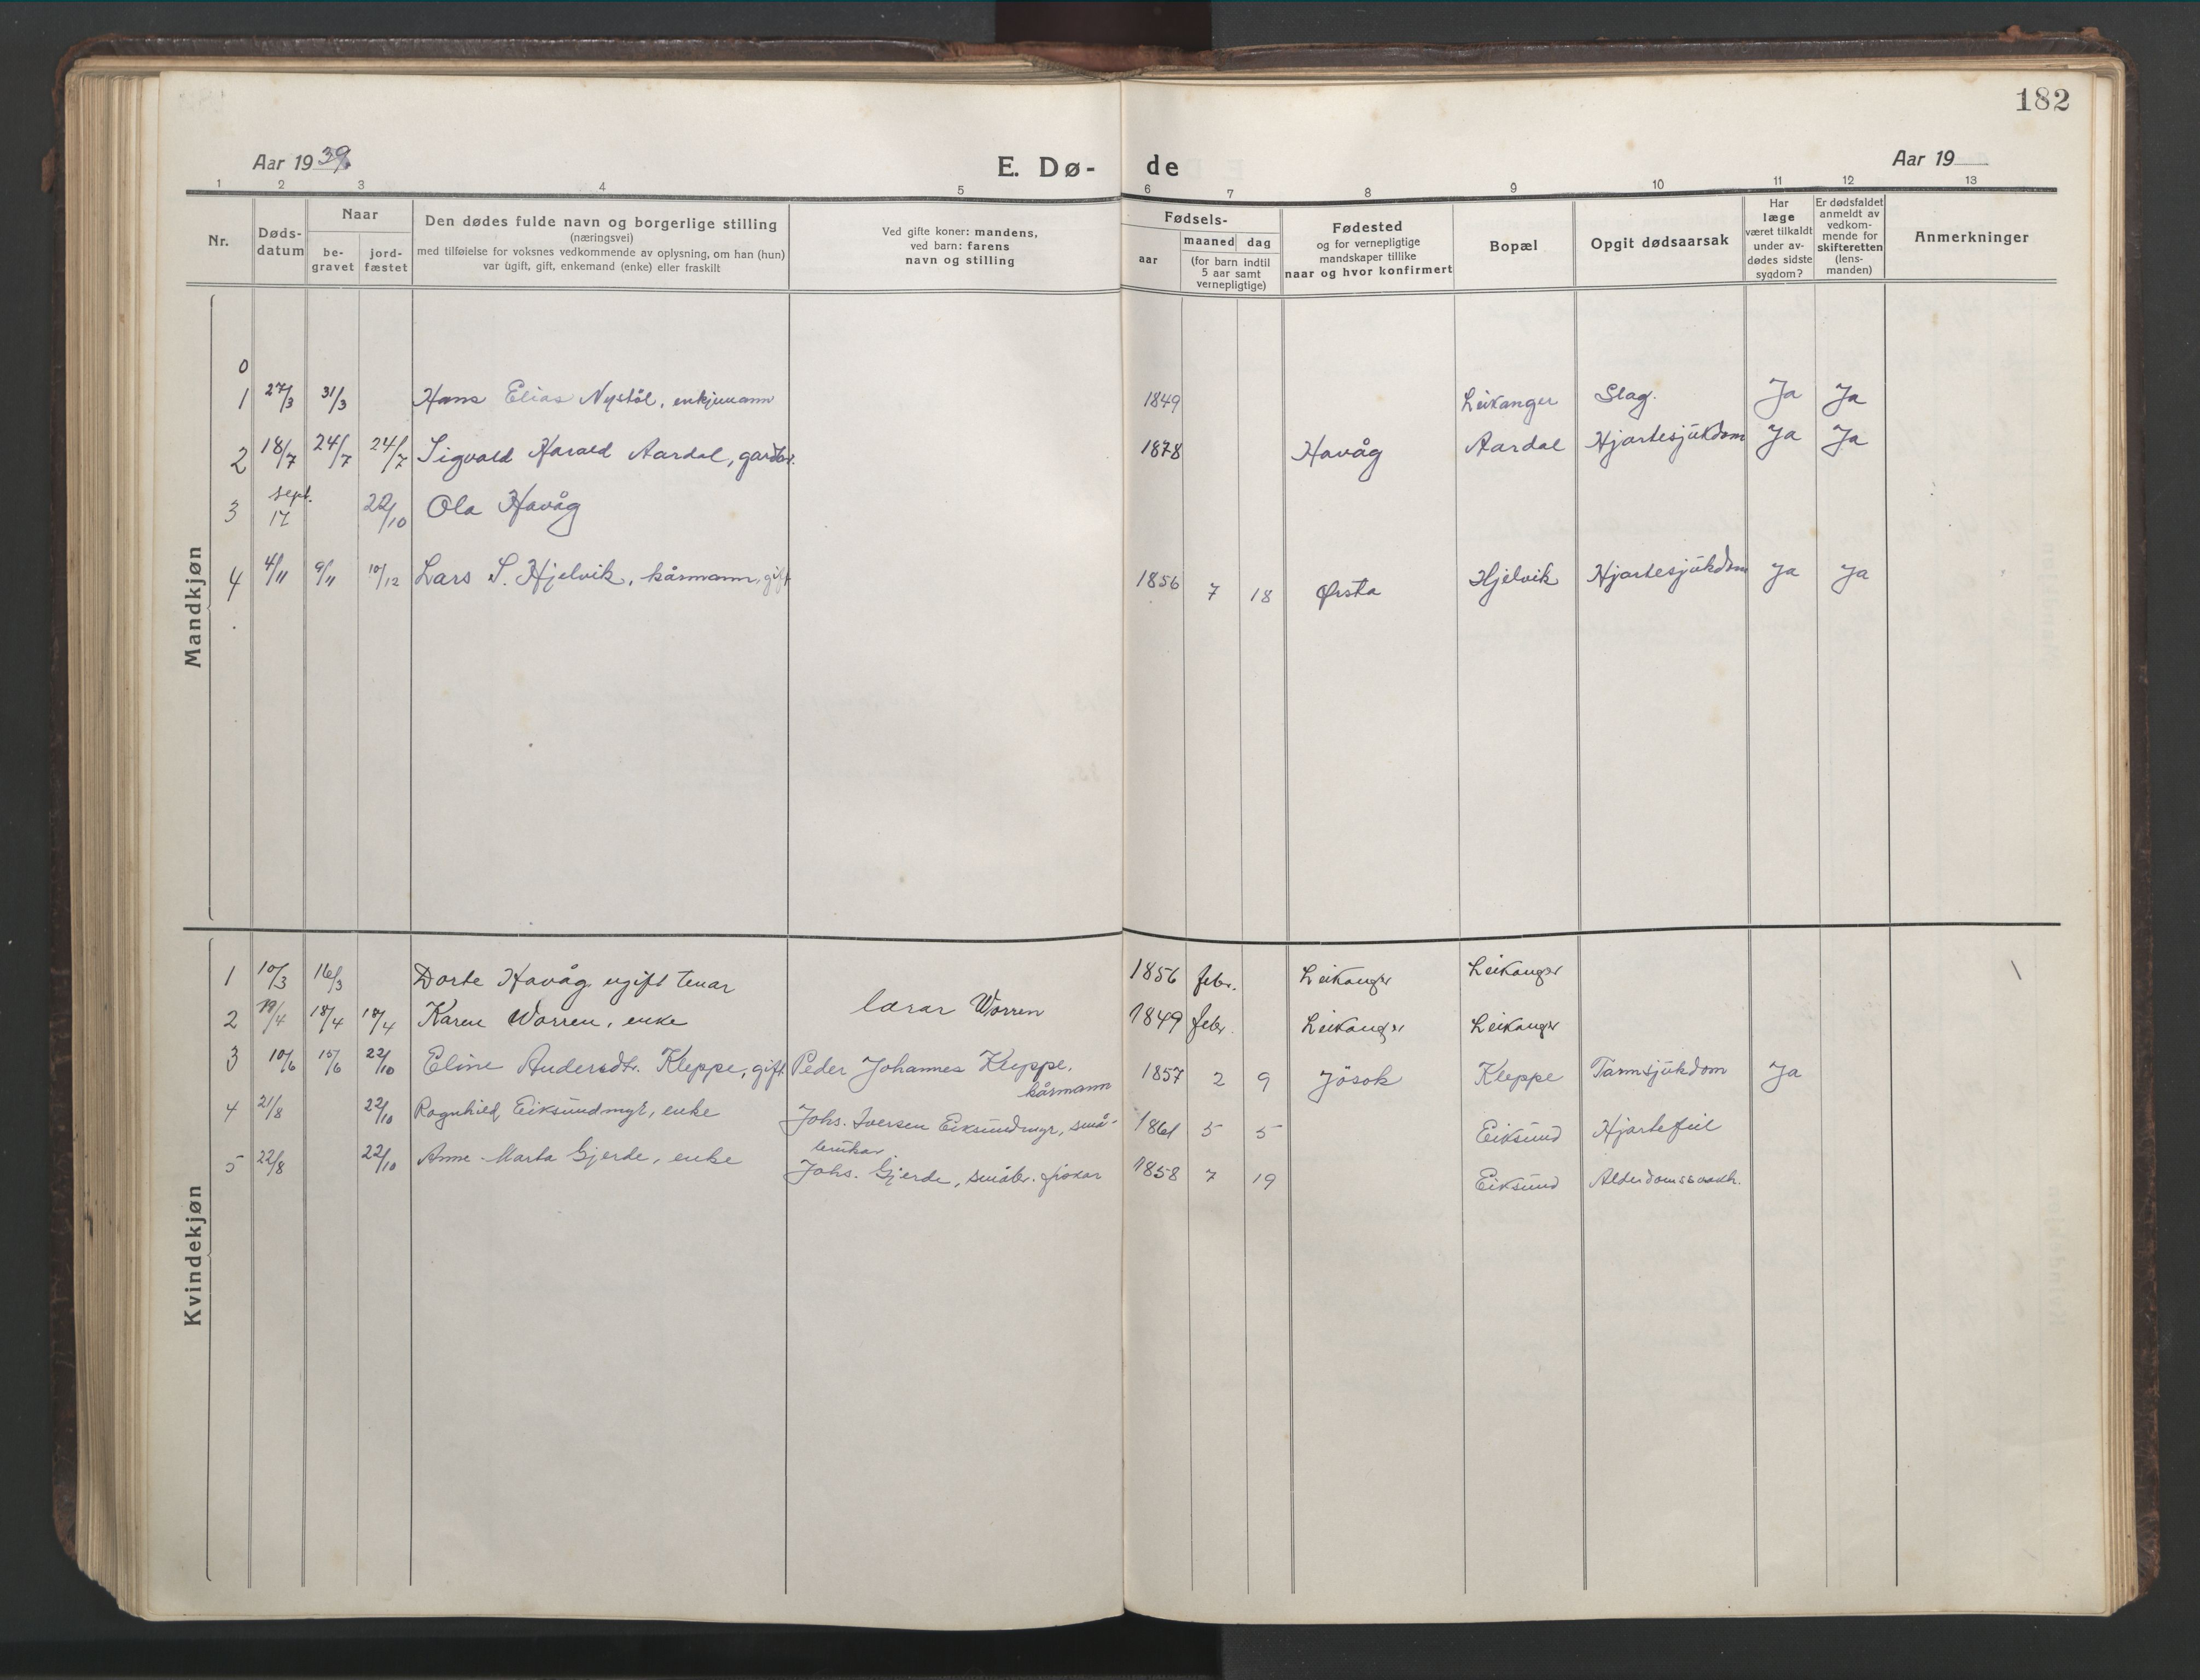 182
Aar 1939
E. Dø- de
Aar 19
1 2 3 4 5 6 7 8 9 10 11 12 13
Nr.
Døds-
datum
Naar
be-
gravet
jord-
fæstet
Den dødes fulde navn og borgerlige stilling
(næringsvei)
med tilføielse for voksnes vedkommende av oplysning, om han (hun)
var ugift, gift, enkemand (enke) eller fraskilt
Ved gifte koner: mandens,
ved barn: farens
navn og stilling
Fødsels-
aar
maaned dag
(for barn indtil
5 aar samt
vernepligtige)
Fødested
og for vernepligtige
mandskaper tillike
naar og hvor konfirmert
Bopæl
Opgit dødsaarsak
Har
læge
været tilkaldt
under av-
dødes sidste
sygdom?
Er dødsfaldet
anmeldt av
vedkom-
mende for
skifteretten
(lens-
manden)
Anmerkninger
Mandkjøn
0
1 27/3 31/3 Hans Elias Nystöl, enkjemann 1849 Leikanger Slag. Ja Ja
2 18/7 24/7 24/7 Sigvald Harald Aardal, gardbr. 1878 Havåg Aardal Hjartesjukdom Ja Ja
3 sept. 17 22/10 Ola Havåg
4 4/11 9/11 10/12 Lars S. Hjelvik, kårmann, gift 1856 7 18 Ørsta Hjelvik Hjartesjukdom Ja Ja
Kvindekjøn
1 10/3 16/3 Dorte Havåg ugift tenar 1856 febr. Leikanger Leikanger
2 /4 18/4 18/4 Karen Worren, enke lærar Worren 1849 febr. Leikanger Leikanger
3 10/6 15/6 22/10 Eline Andersdtr. Kleppe, gift Peder Johannes Kleppe, 1857 2 9 Jösok Kleppe Tarmsjukdom Ja
kårmann
4 21/8 22/10 Ragnhild Eiksundmyr, enke Johs. Iversen Eiksundmyr, små- 1861 5 5 Eiksund Hjartefeil
brukar
5 22/8 22/10 Anne-Marta Gjerde, enke Johs. Gjerde, småbr. fiskar 1858 7 19 Eiksund Alderdomssvakh.